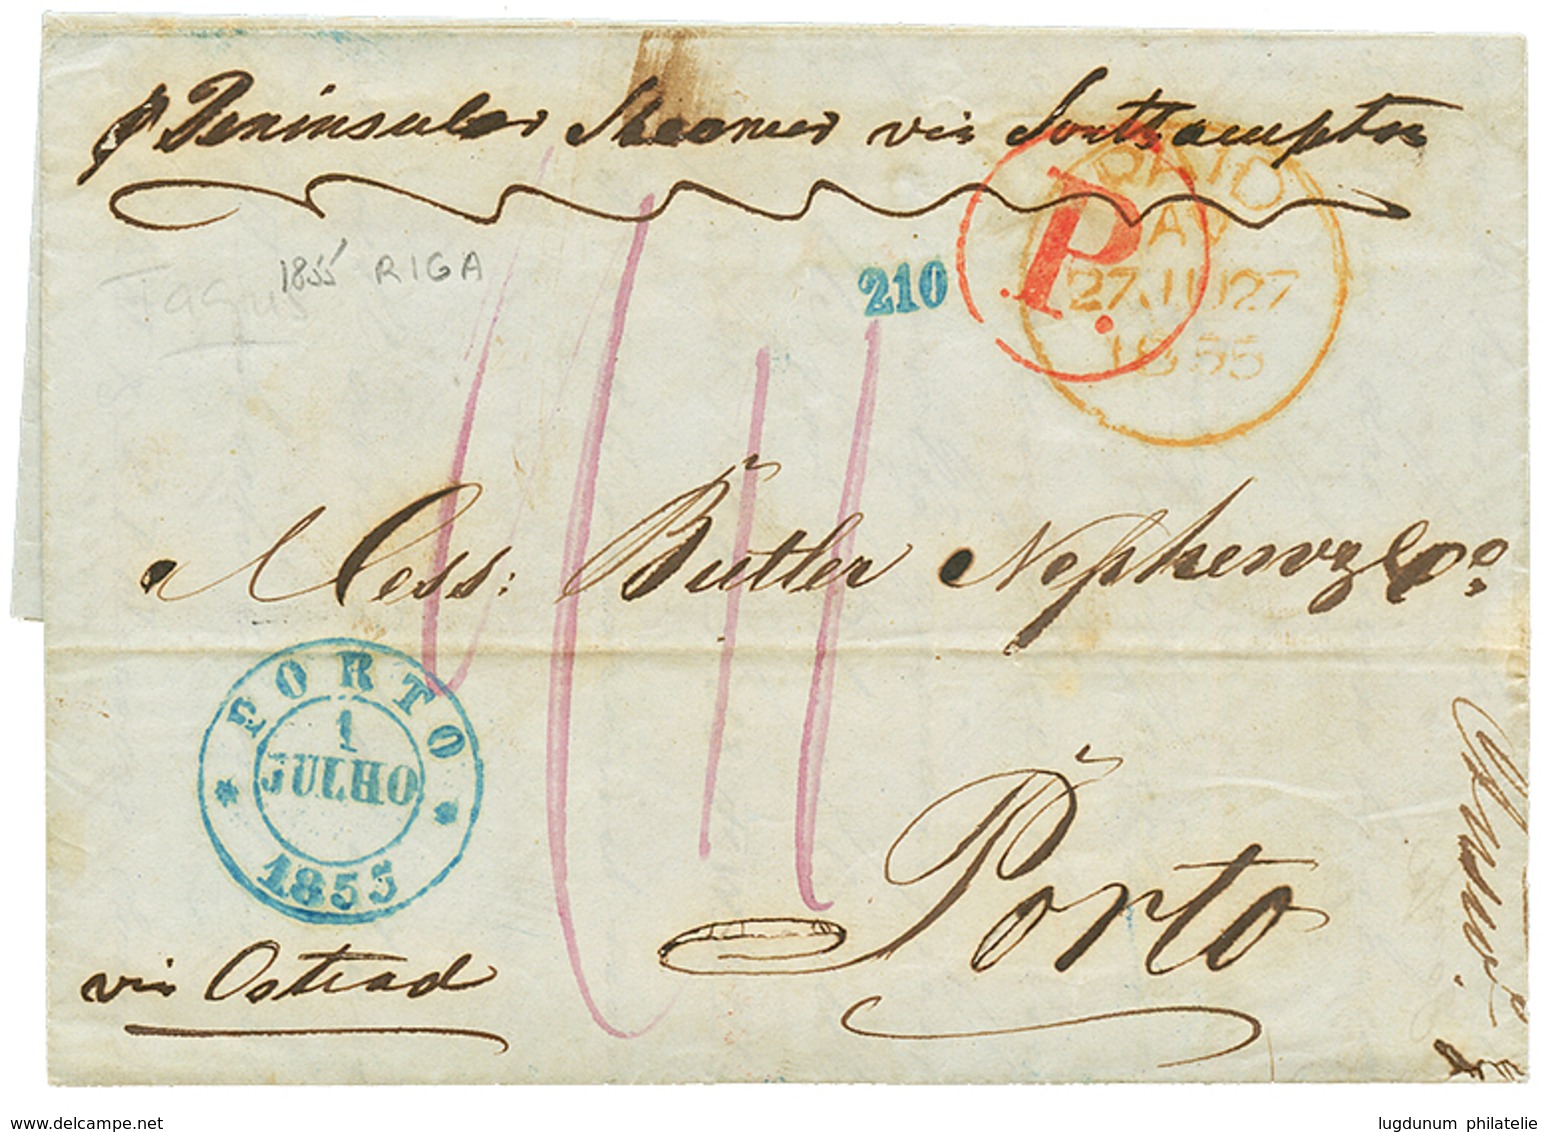 p Peninsular Steamer via Southampton
PAID
AV
27 JU 27
1855
P.
210
1855 RIGA
Tagus
Mess: Butler Nephew & Co.
PORTO
1
JULHO
1855
Porto
via Ostead
www.delcampe.net
lugdunum philatelie